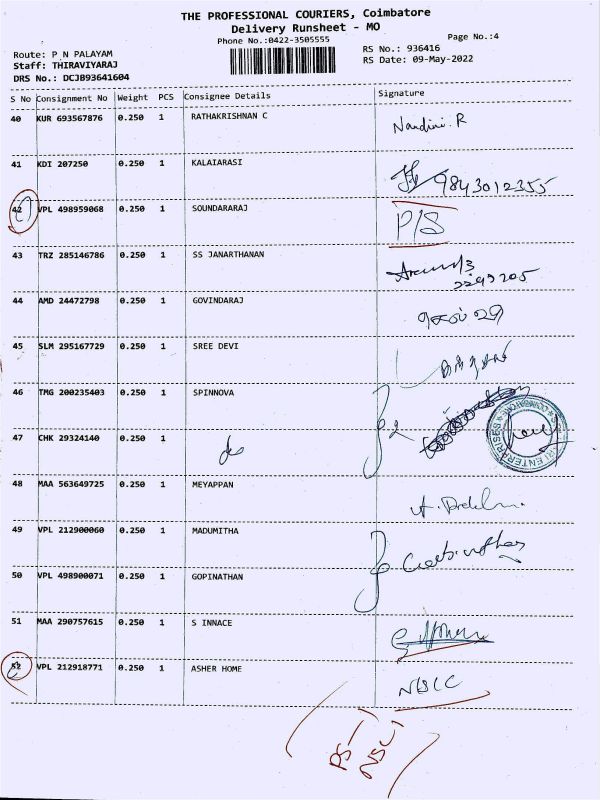 THE PROFESSIONAL COURIERS, Coimbatore
Delivery Runsheet - MO
Phone No.:0422-3505555
Page No.:4
Route: P N PALAYAM
RS No.: 936416
Staff: THIRAVIYARAJ
RS Date: 09-May-2022
DRS No.: DCJB93641604
S No Consignment No Weight PCS Consignee Details Signature
40 KUR 693567876 0.250 1 RATHAKRISHNAN C Nandini. R
41 KDI 207250 0.250 1 KALAIARASI 9843012355
42 VPL 498959068 0.250 1 SOUNDARARAJ P/S
43 TRZ 285146786 0.250 1 SS JANARTHANAN
44 AMD 24472798 0.250 1 GOVINDARAJ
45 SLM 295167729 0.250 1 SREE DEVI
46 TMG 200235403 0.250 1 SPINNOVA 2
47 CHK 29324140 0.250 1 do
48 MAA 563649725 0.250 1 MEYAPPAN
49 VPL 212900060 0.250 1 MADUMITHA
50 VPL 498900071 0.250 1 GOPINATHAN
51 MAA 290757615 0.250 1 S INNACE
52 VPL 212918771 0.250 1 ASHER HOME